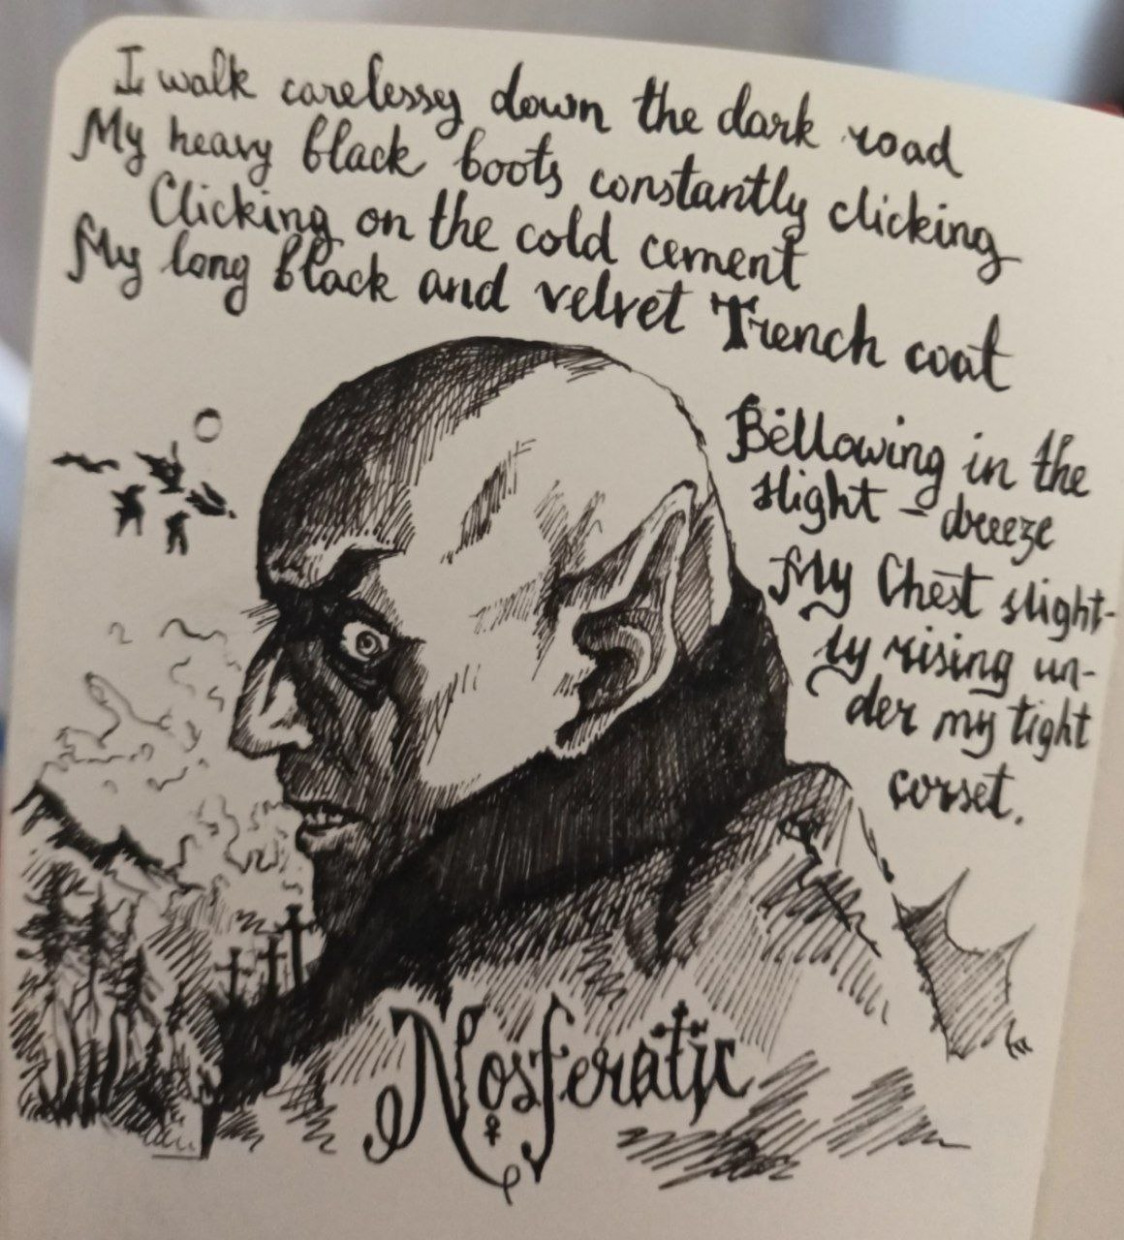 I walk carelessy down the dark road
My heavy black boots constantly clicking
Clicking on the cold cement
My long black and velvet Trench coat
Bellowing in the
slight - breeze
My Chest slight-
ly rising un-
der my tight
corset.
Nosferatu